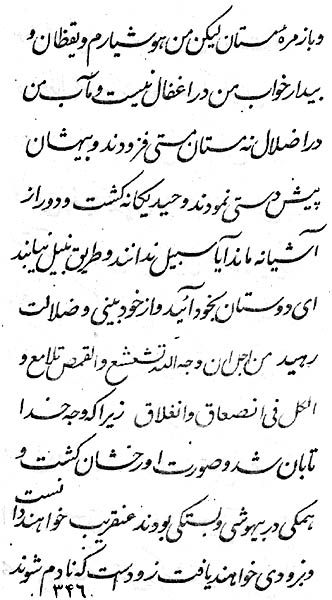 و با زمرهٔ مستان لیکن من هوشیارم و یقظان و
بیدار خواب من در اغفال نیست و مآب من
در اضلال نه مستان مستی فزودند و بیهشان
پیش دستی نمودند وحید یگانه گشت و دور از
آشیانه ماند آیا سبیل ندانند و طریق نبیل نیابند
ای دوستان بخود آئید و از خود بینی و ضلالت
رهید من اجل ان وجه الله تشعشع و القمص تلامع و
الکل فی انصعاق و انغلاق زیرا که وجه خدا
تابان شد و صورت او رخشان گشت و
همگی در بیهوشی و بستگی بودند عنقریب خواهند دانست
و بزودی خواهند یافت زود است که نادم شوند
۳۴۶